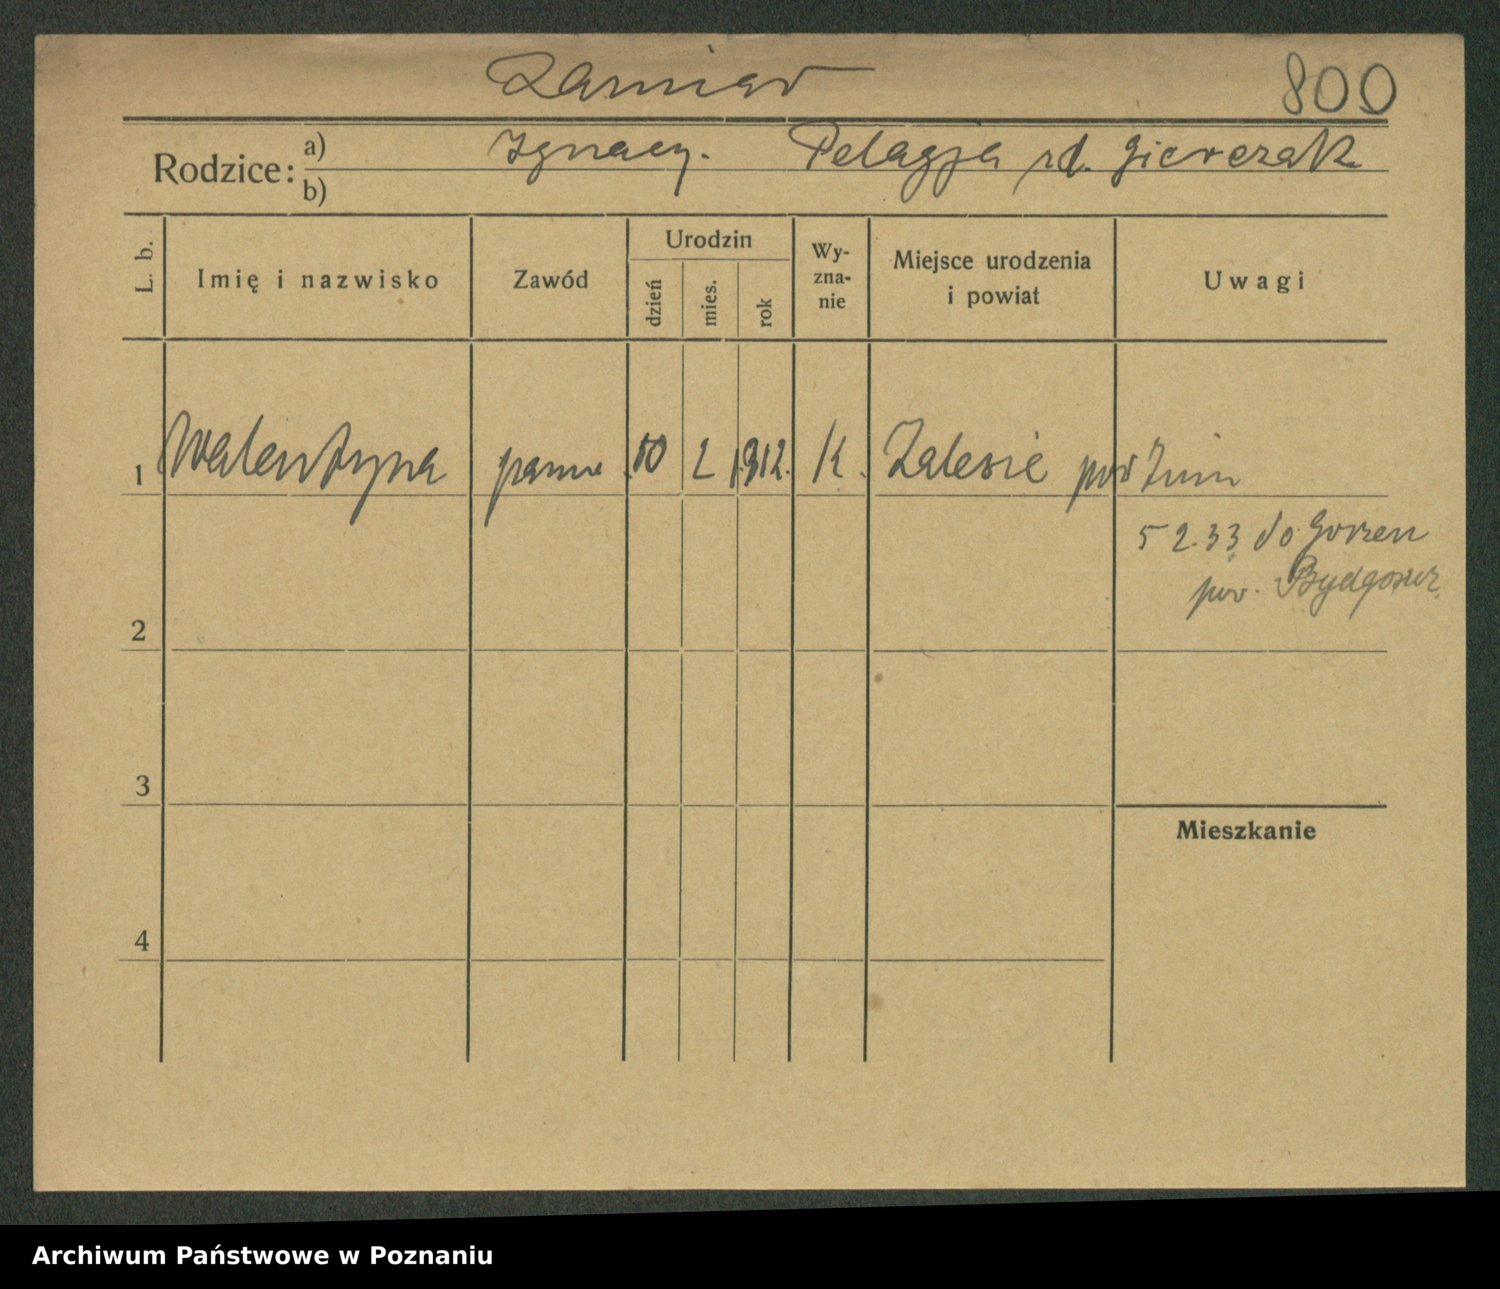 800
Rodzice: a) Ignacy. Pelagja rd. Gierczak
b)
L. b.
Imię i nazwisko
Zawód
Urodzin
dzień
mies.
rok
Wy-
zna-
nie
Miejsce urodzenia
i powiat
Uwagi
1 Walentyna panna 10 2 1912. K. Zalesie pow Żnin
5 2.33 do Gorzen
pow. Bydgoszcz
2
3
Mieszkanie
4
Archiwum Państwowe w Poznaniu